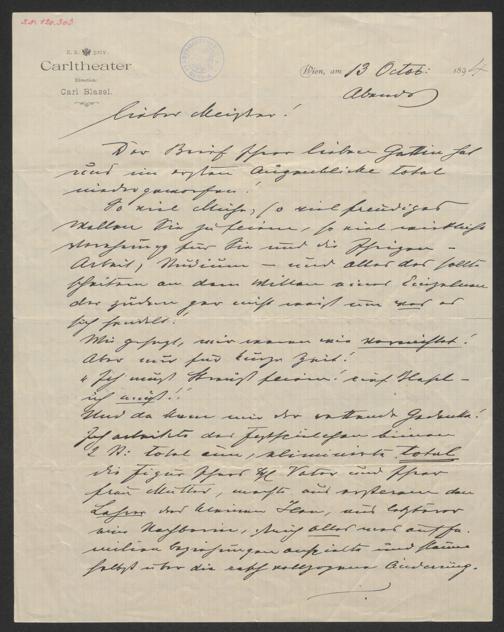 K. K. priv.
Carltheater
Direction:
Carl Blasel.
Wien, am 13 Octob: 1894
Abends
Lieber Meister!
Der Brief Ihrer lieben Gattin hat
uns im ersten Augenblicke total
niedergeworfen!
So viel Mühe, so viel freudiges
Wollen Sie zu feiern, so viel wirkliche
Verehrung für Sie und die Ihrigen –
Arbeit, Studium – und alles das sollte
scheitern an dem Willen eines Einzelnen
der zudem gar nicht weiß um was es
sich handelt!
Wie gesagt, wir waren wie vernichtet!
Aber nur für kurze Zeit!
"Ich muß Strauß feiern! rief –
ich muß!!
Und da kam mir der rettende Gedanke!
Ich arbeitete das Festspielchen binnen
2 St: total um, eliminirte total
die Figur Ihres Vater und Ihrer
Frau Mutter, machte aus ersterem den
Lehrer des kleinen, aus letzterer
eine Nachbarin, strich alles was auf Fa-
milienbeziehungen anspielte und staune
selbst über die rasch vollzogene Änderung.